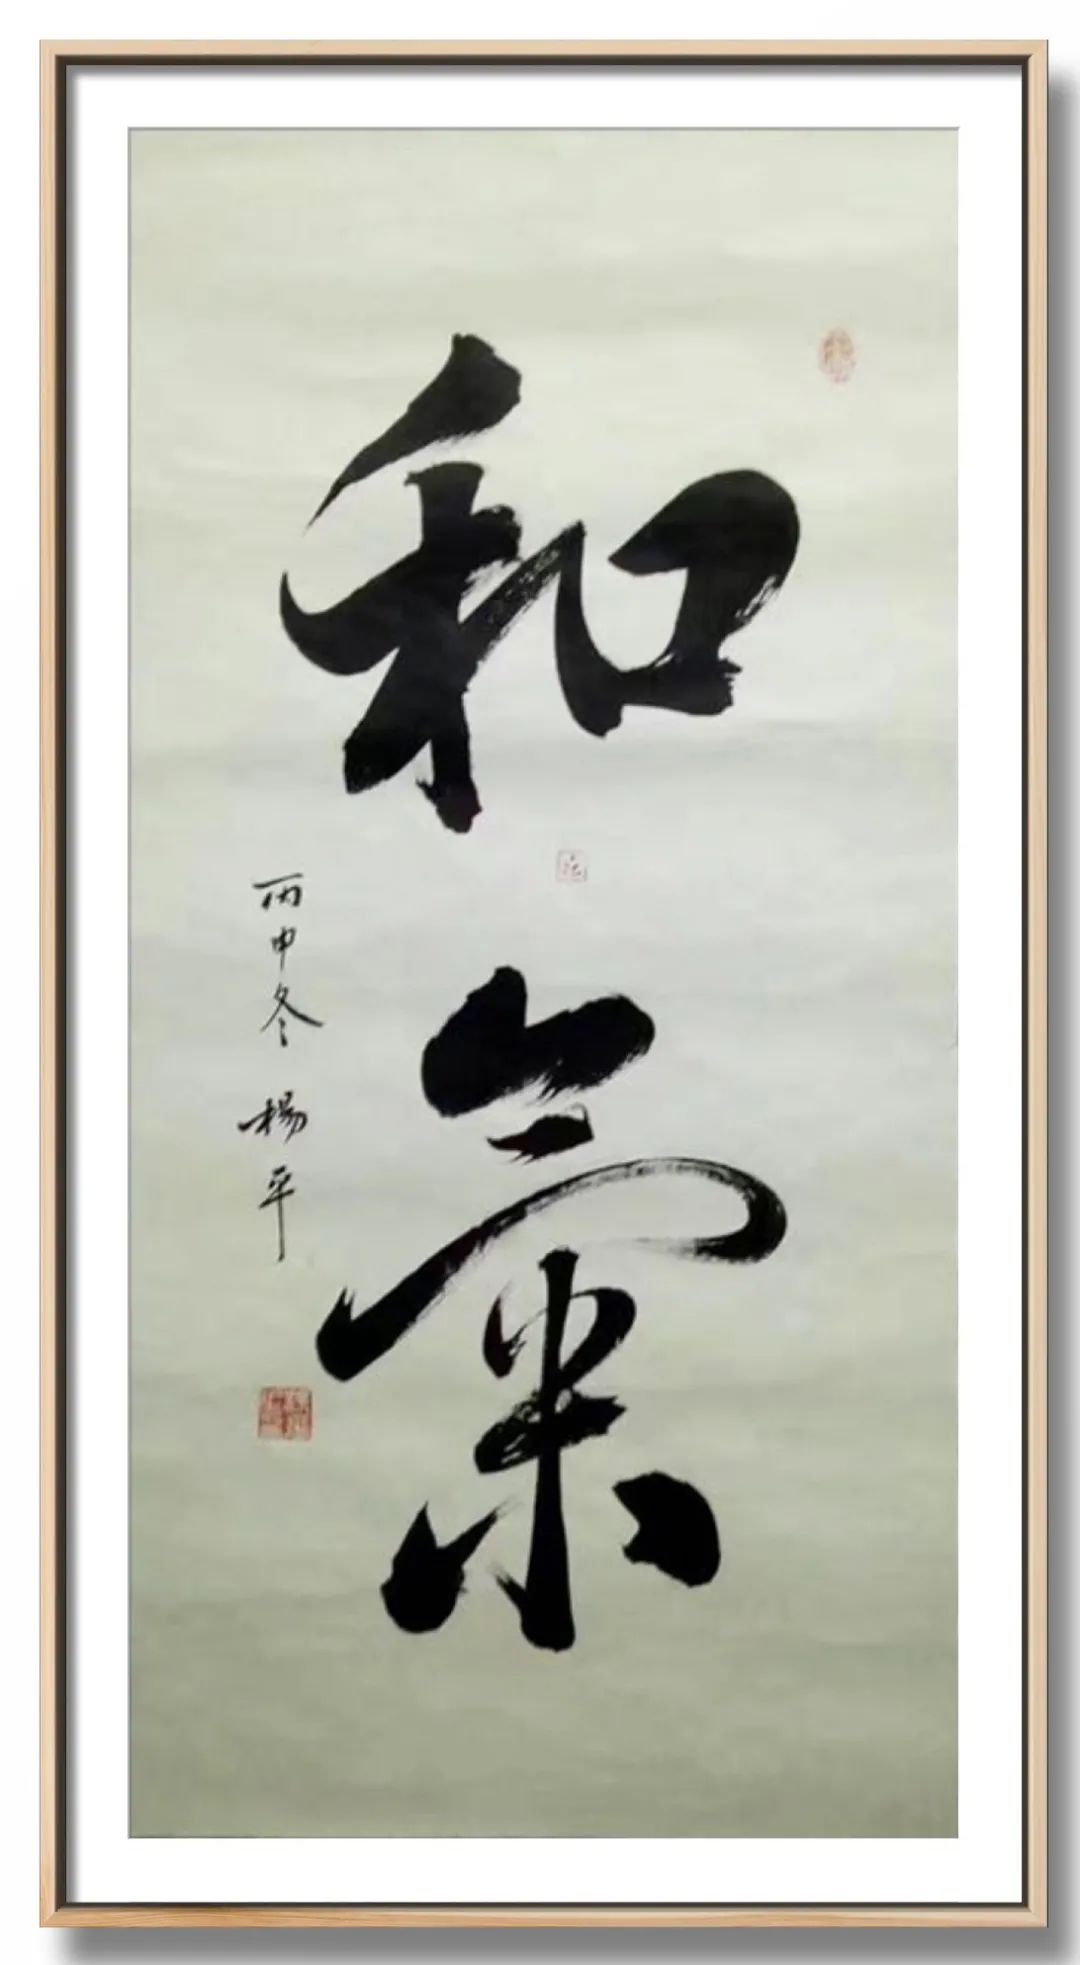 和
氣
丙申冬 楊平